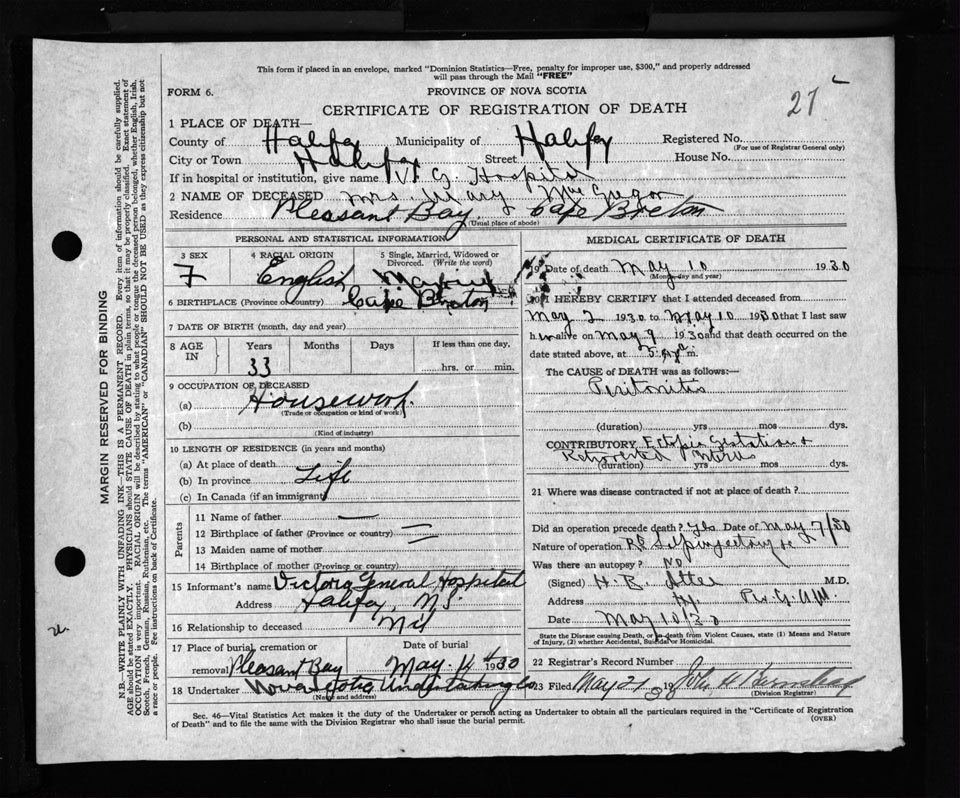 This form if placed in an envelope, marked "Dominion Statistics—Free, penalty for improper use, $300," and properly addressed
will pass through the Mail "FREE"
27
FORM 6.
PROVINCE OF NOVA SCOTIA
CERTIFICATE OF REGISTRATION OF DEATH
1 PLACE OF DEATH—
County of Halifax Municipality of Halifax Registered No.
(For use of Registrar General only)
City or Town Halifax Street House No.
If in hospital or institution, give name V. G. Hospital
2 NAME OF DECEASED Mrs Mary McGregor
Residence Pleasant Bay, Cape Breton
(Usual place of abode)
PERSONAL AND STATISTICAL INFORMATION
3 SEX 4 RACIAL ORIGIN 5 Single, Married, Widowed or
Divorced (Write the word)
F English Married
6 BIRTHPLACE (Province or country) Cape Breton
7 DATE OF BIRTH (month, day and year)
8 AGE IN Years Months Days If less than one day,
33 hrs. or min.
9 OCCUPATION OF DECEASED
(a) Housework
(Trade or occupation or kind of work)
(b)
(Kind of industry)
10 LENGTH OF RESIDENCE (in years and months)
(a) At place of death
(b) In province Life
(c) In Canada (if an immigrant)
Parents
11 Name of father —
12 Birthplace of father (Province or country) —
13 Maiden name of mother —
14 Birthplace of mother (Province or country)
15 Informant's name Victoria General Hospital
Address Halifax, N.S.
16 Relationship to deceased Nil
17 Place of burial, cremation or Date of burial
removal Pleasant Bay May 14th 1930
18 Undertaker Nova Scotia Undertaking Co
(Name and address)
MEDICAL CERTIFICATE OF DEATH
19 Date of death May 10 1930
(Month, day and year)
20 I HEREBY CERTIFY that I attended deceased from
May 2 1930 to May 10 1930 that I last saw
her alive on May 9 1930 and that death occurred on the
date stated above, at m.
The CAUSE of DEATH was as follows:—
Peritonitis
(duration) yrs mos dys.
CONTRIBUTORY Ectopic Gestation +
Retroverted Uterus
(duration) yrs mos dys.
21 Where was disease contracted if not at place of death?
Did an operation precede death? Yes Date of May 7/30
Nature of operation
Was there an autopsy? No
(Signed) H. B. M.D.
Address
Date May 10/30
State the Disease causing Death, or in death from Violent Causes, state (1) Means and Nature
of Injury, (2) whether Accidental, Suicidal or Homicidal.
22 Registrar's Record Number
23 Filed May 21 19 John H
(Division Registrar)
Sec. 46—Vital Statistics Act makes it the duty of the Undertaker or person acting as Undertaker to obtain all the particulars required in the "Certificate of Registration
of Death" and to file the same with the Division Registrar who shall issue the burial permit.
(OVER)
MARGIN RESERVED FOR BINDING
N.B.—WRITE PLAINLY WITH UNFADING INK—THIS IS A PERMANENT RECORD. Every item of information should be carefully supplied.
AGE should be stated EXACTLY. PHYSICIANS should STATE CAUSE OF DEATH in plain terms, so that it may be properly classified. Exact statement of
OCCUPATION is very important. RACIAL ORIGIN will be described by stating to what people or tongue the deceased person belonged, whether English, Irish,
Scotch, French, German, Russian, Ruthenian, etc. The terms "AMERICAN" or "CANADIAN" SHOULD NOT BE USED as they express citizenship but not
a race or people. See instructions on back of Certificate.